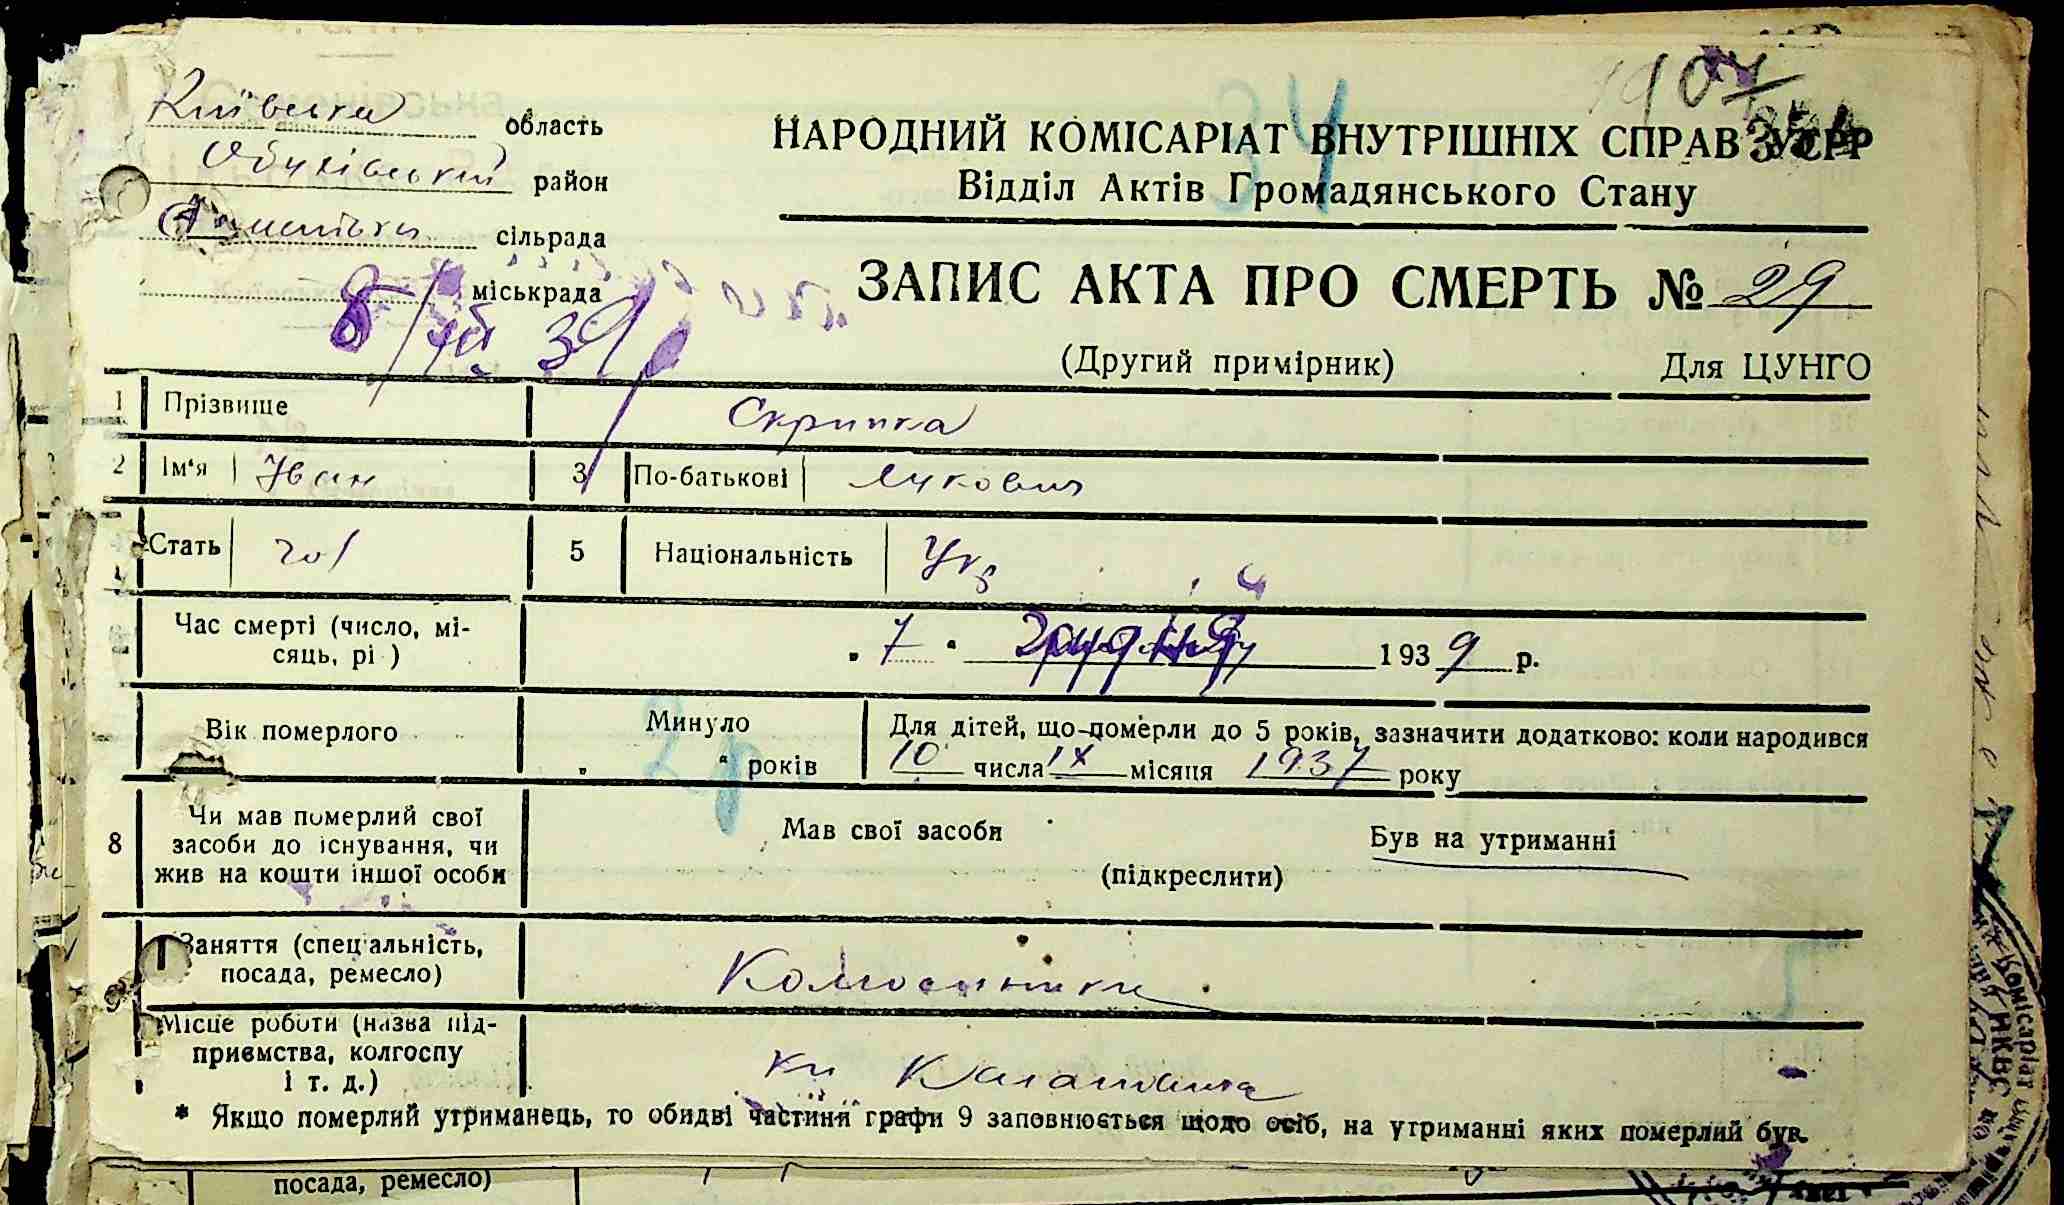 Київська область
Обухівський район
сільрада
міськрада
34
НАРОДНИЙ КОМІСАРІАТ ВНУТРІШНІХ СПРАВ УСРР
Відділ Актів Громадянського Стану
ЗАПИС АКТА ПРО СМЕРТЬ № 29
(Другий примірник) Для ЦУНГО
8/XII 39
1 Прізвище Скрипка
2 Ім'я Іван 3 По-батькові Лукович
Стать чол 5 Національність Укр
Час смерті (число, мі-
сяць, рі ) „ 7 " грудня 1939 р.
Вік померлого Минуло Для дітей, що померли до 5 років, зазначити додатково: коли народився
„ 2 р " років 10 числа IX місяця 1937 року
8 Чи мав померлий свої
засоби до існування, чи
жив на кошти іншої особи Мав свої засоби Був на утриманні
(підкреслити)
9 Заняття (спеціальність,
посада, ремесло) Колгоспники
Місце роботи (назва під-
приємства, колгоспу
і т. д.)
* Якщо померлий утриманець, то обидві частини графи 9 заповнюється щодо осіб, на утриманні яких померлий був.
посада, ремесло)